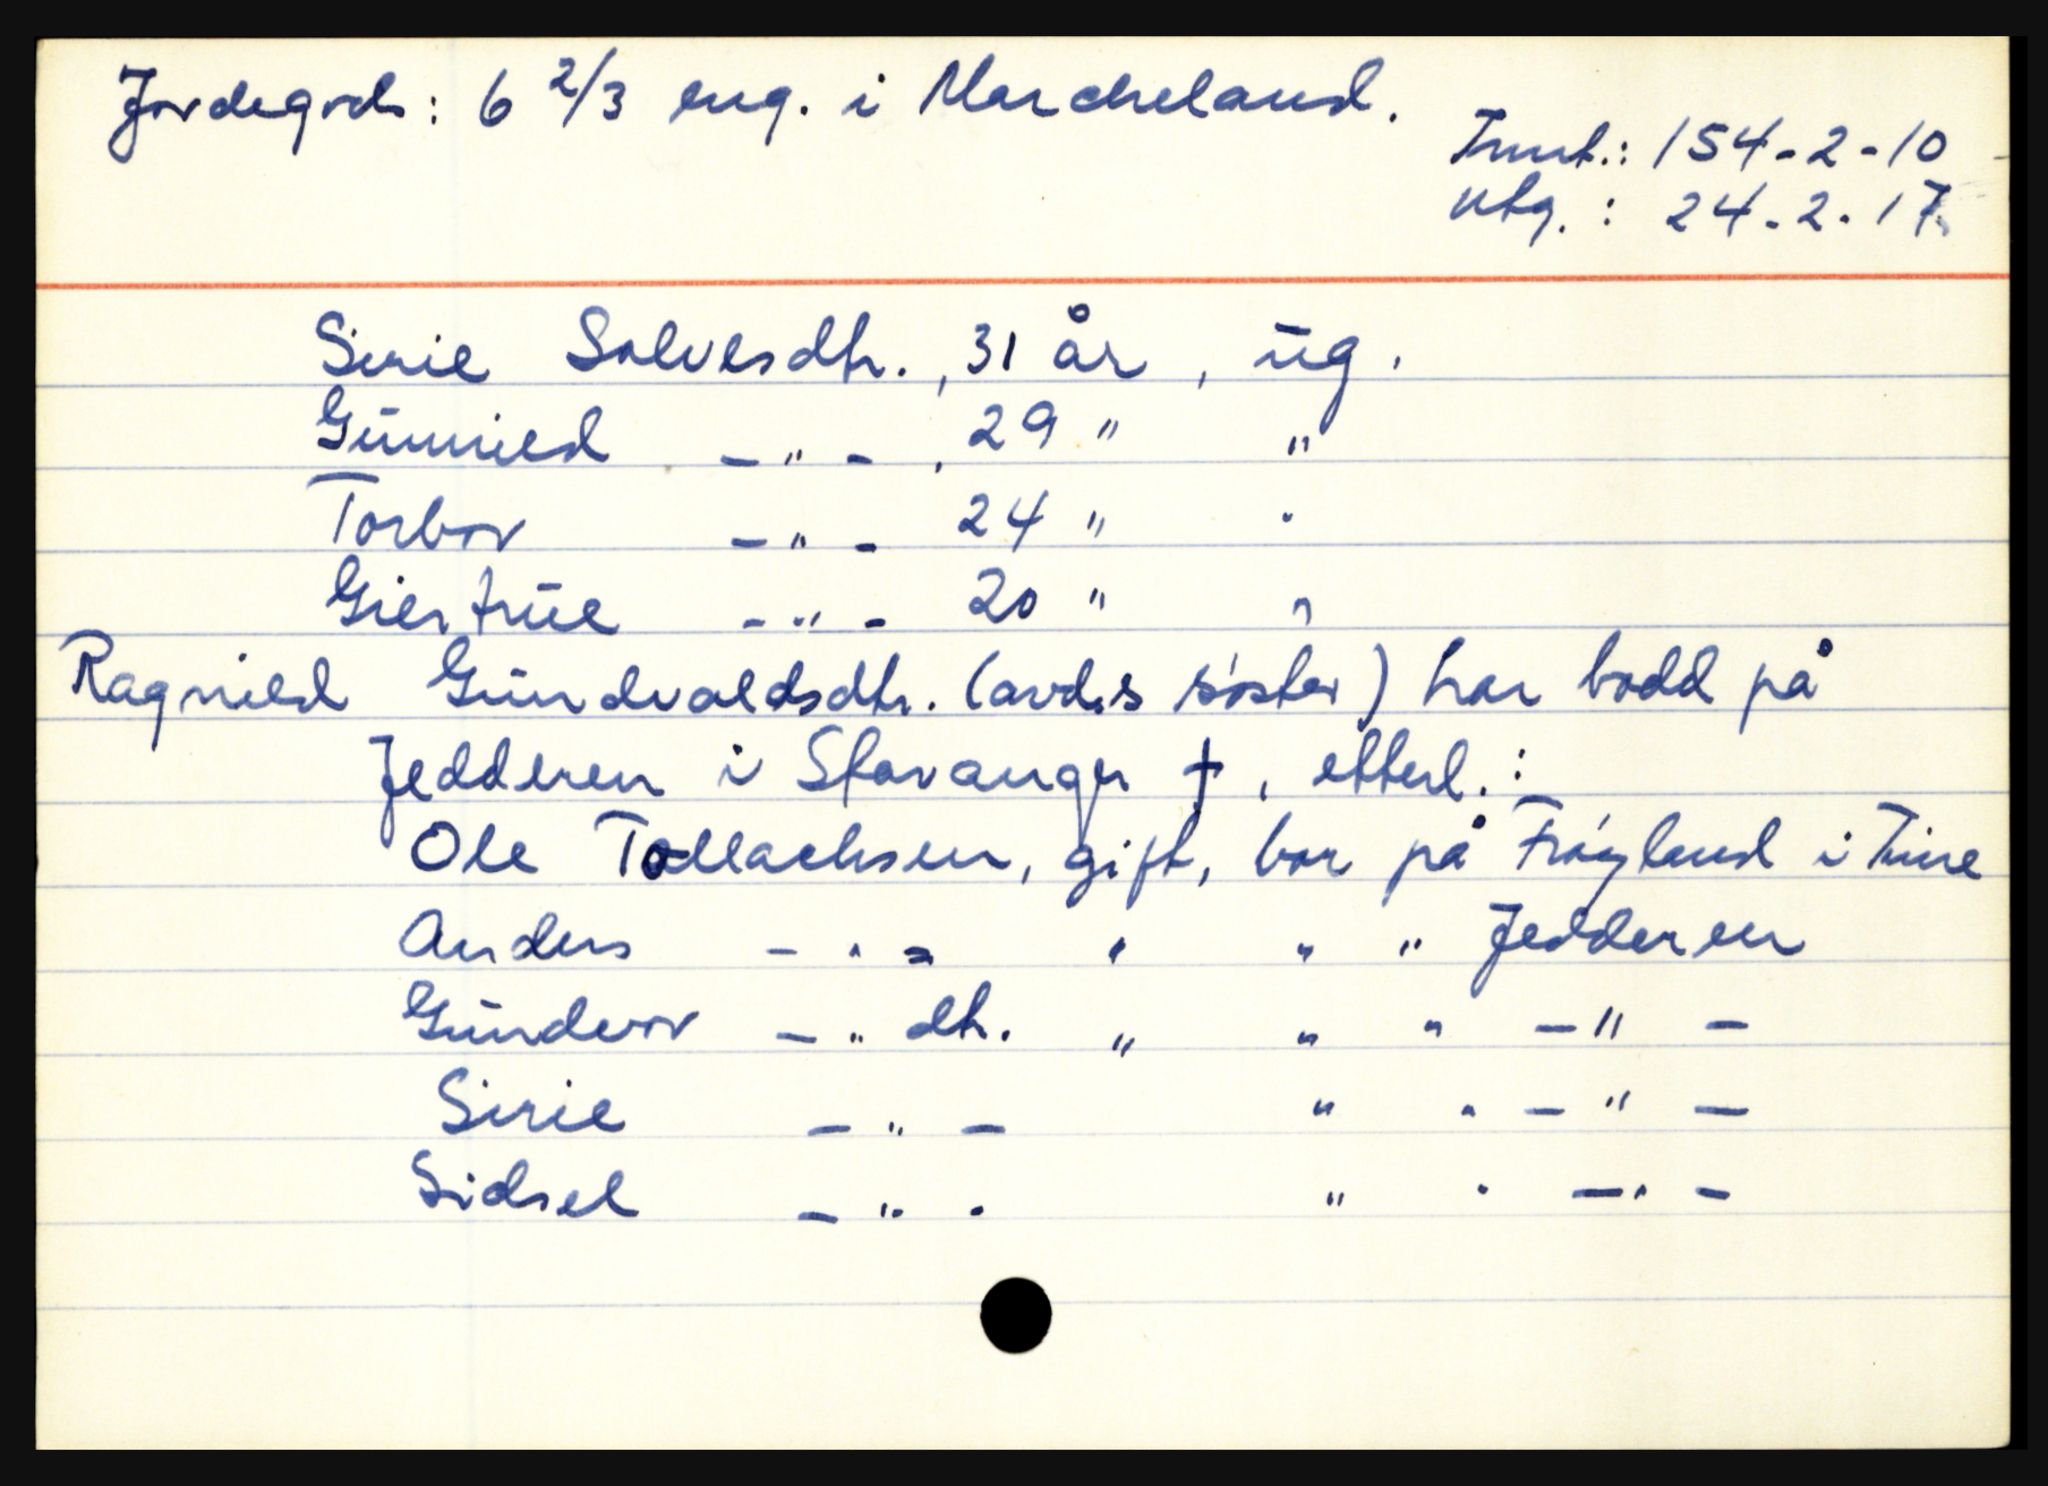 Jordegods: 6 2/3 eng. i Marcheland.
Innt.: 154-2-10
Utg.: 24-2-17
Sirie Solvesdtr., 31 år, ug.
Gunnild -"- , 29 " "
Torbor -"- 24 " "
Giertrue -"- 20 " "
Ragnild Gundvaldsdtr. (avd.s søster) har bodd på
Jedderen i Stavanger †, etterl.:
Ole Tollachsen, gift, bor på Frøyland i Time
Anders -"- " " " Jedderen
Gundvor -"dtr. " " " -"-
Sirie -"- " " -"-
Sidsel -"- " " -"-